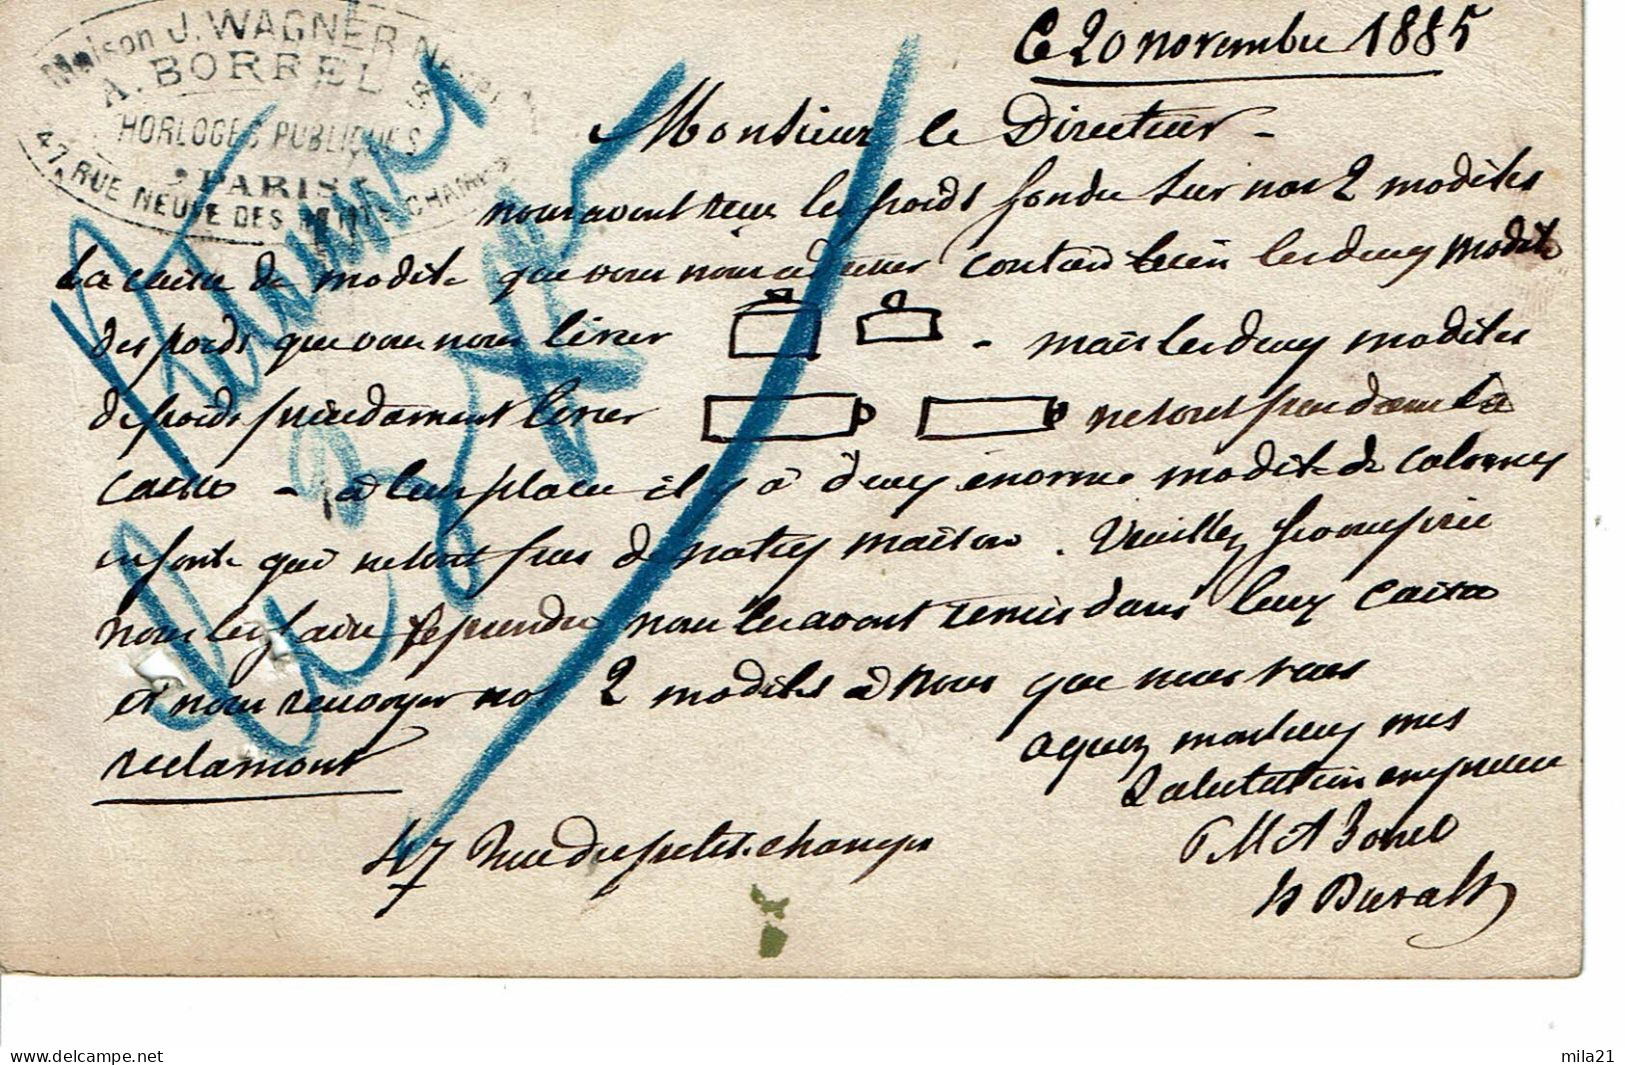 Maison J. WAGNER Neveu
A. BORREL Sr
HORLOGES PUBLIQUES
PARIS
47, RUE NEUVE DES PETITS CHAMPS
Le 20 novembre 1885
Monsieur le Directeur -
nous avons reçu les poids fondu sur nos 2 modèles
La caisse de modèle que vous nous adresser contain bien les deux modèle
des poids que vous nous livrer - mais les deux modèles
de poids précédament livrer ne sont pas dans la
caisse - à leur place il y a deux énorme modèle de colonnes
en fonte qui ne sont pas de notres maison. Veuillez
nous les faire reprendre nous les avons remis dans leur caisse
et nous renvoyer nos 2 modèles à nous que nous vous
reclamons
agreez monsieur mes
Salutation empressée
P M A Borrel
47 Rue des petits champs